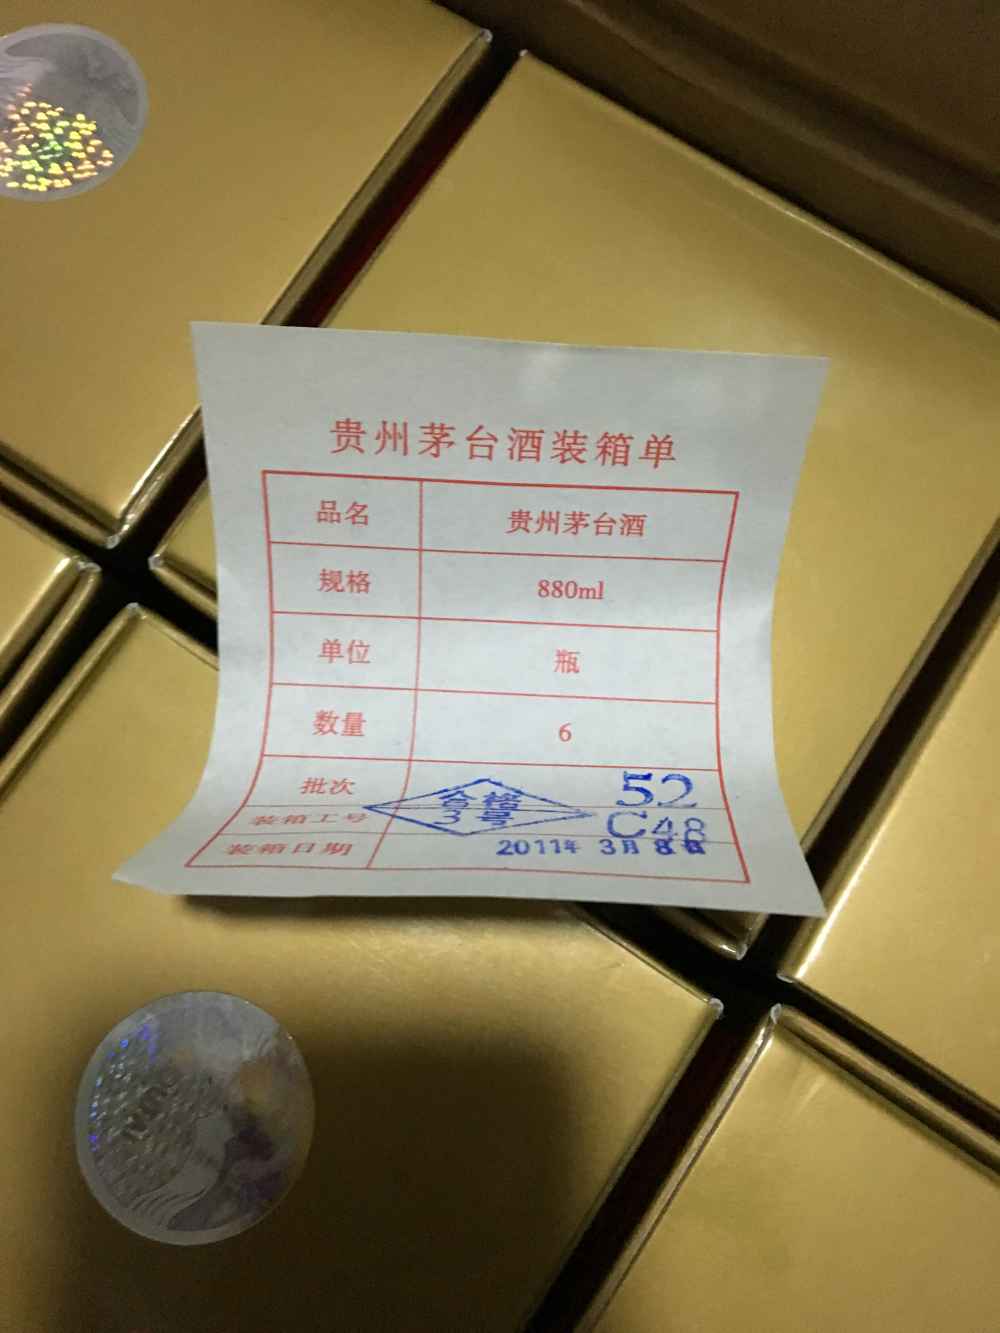 贵州茅台酒装箱单
品名 贵州茅台酒
规格 880ml
单位 瓶
数量 6
批次 52
装箱工号 合格 3号 C48
装箱日期 2011年 3月 8日